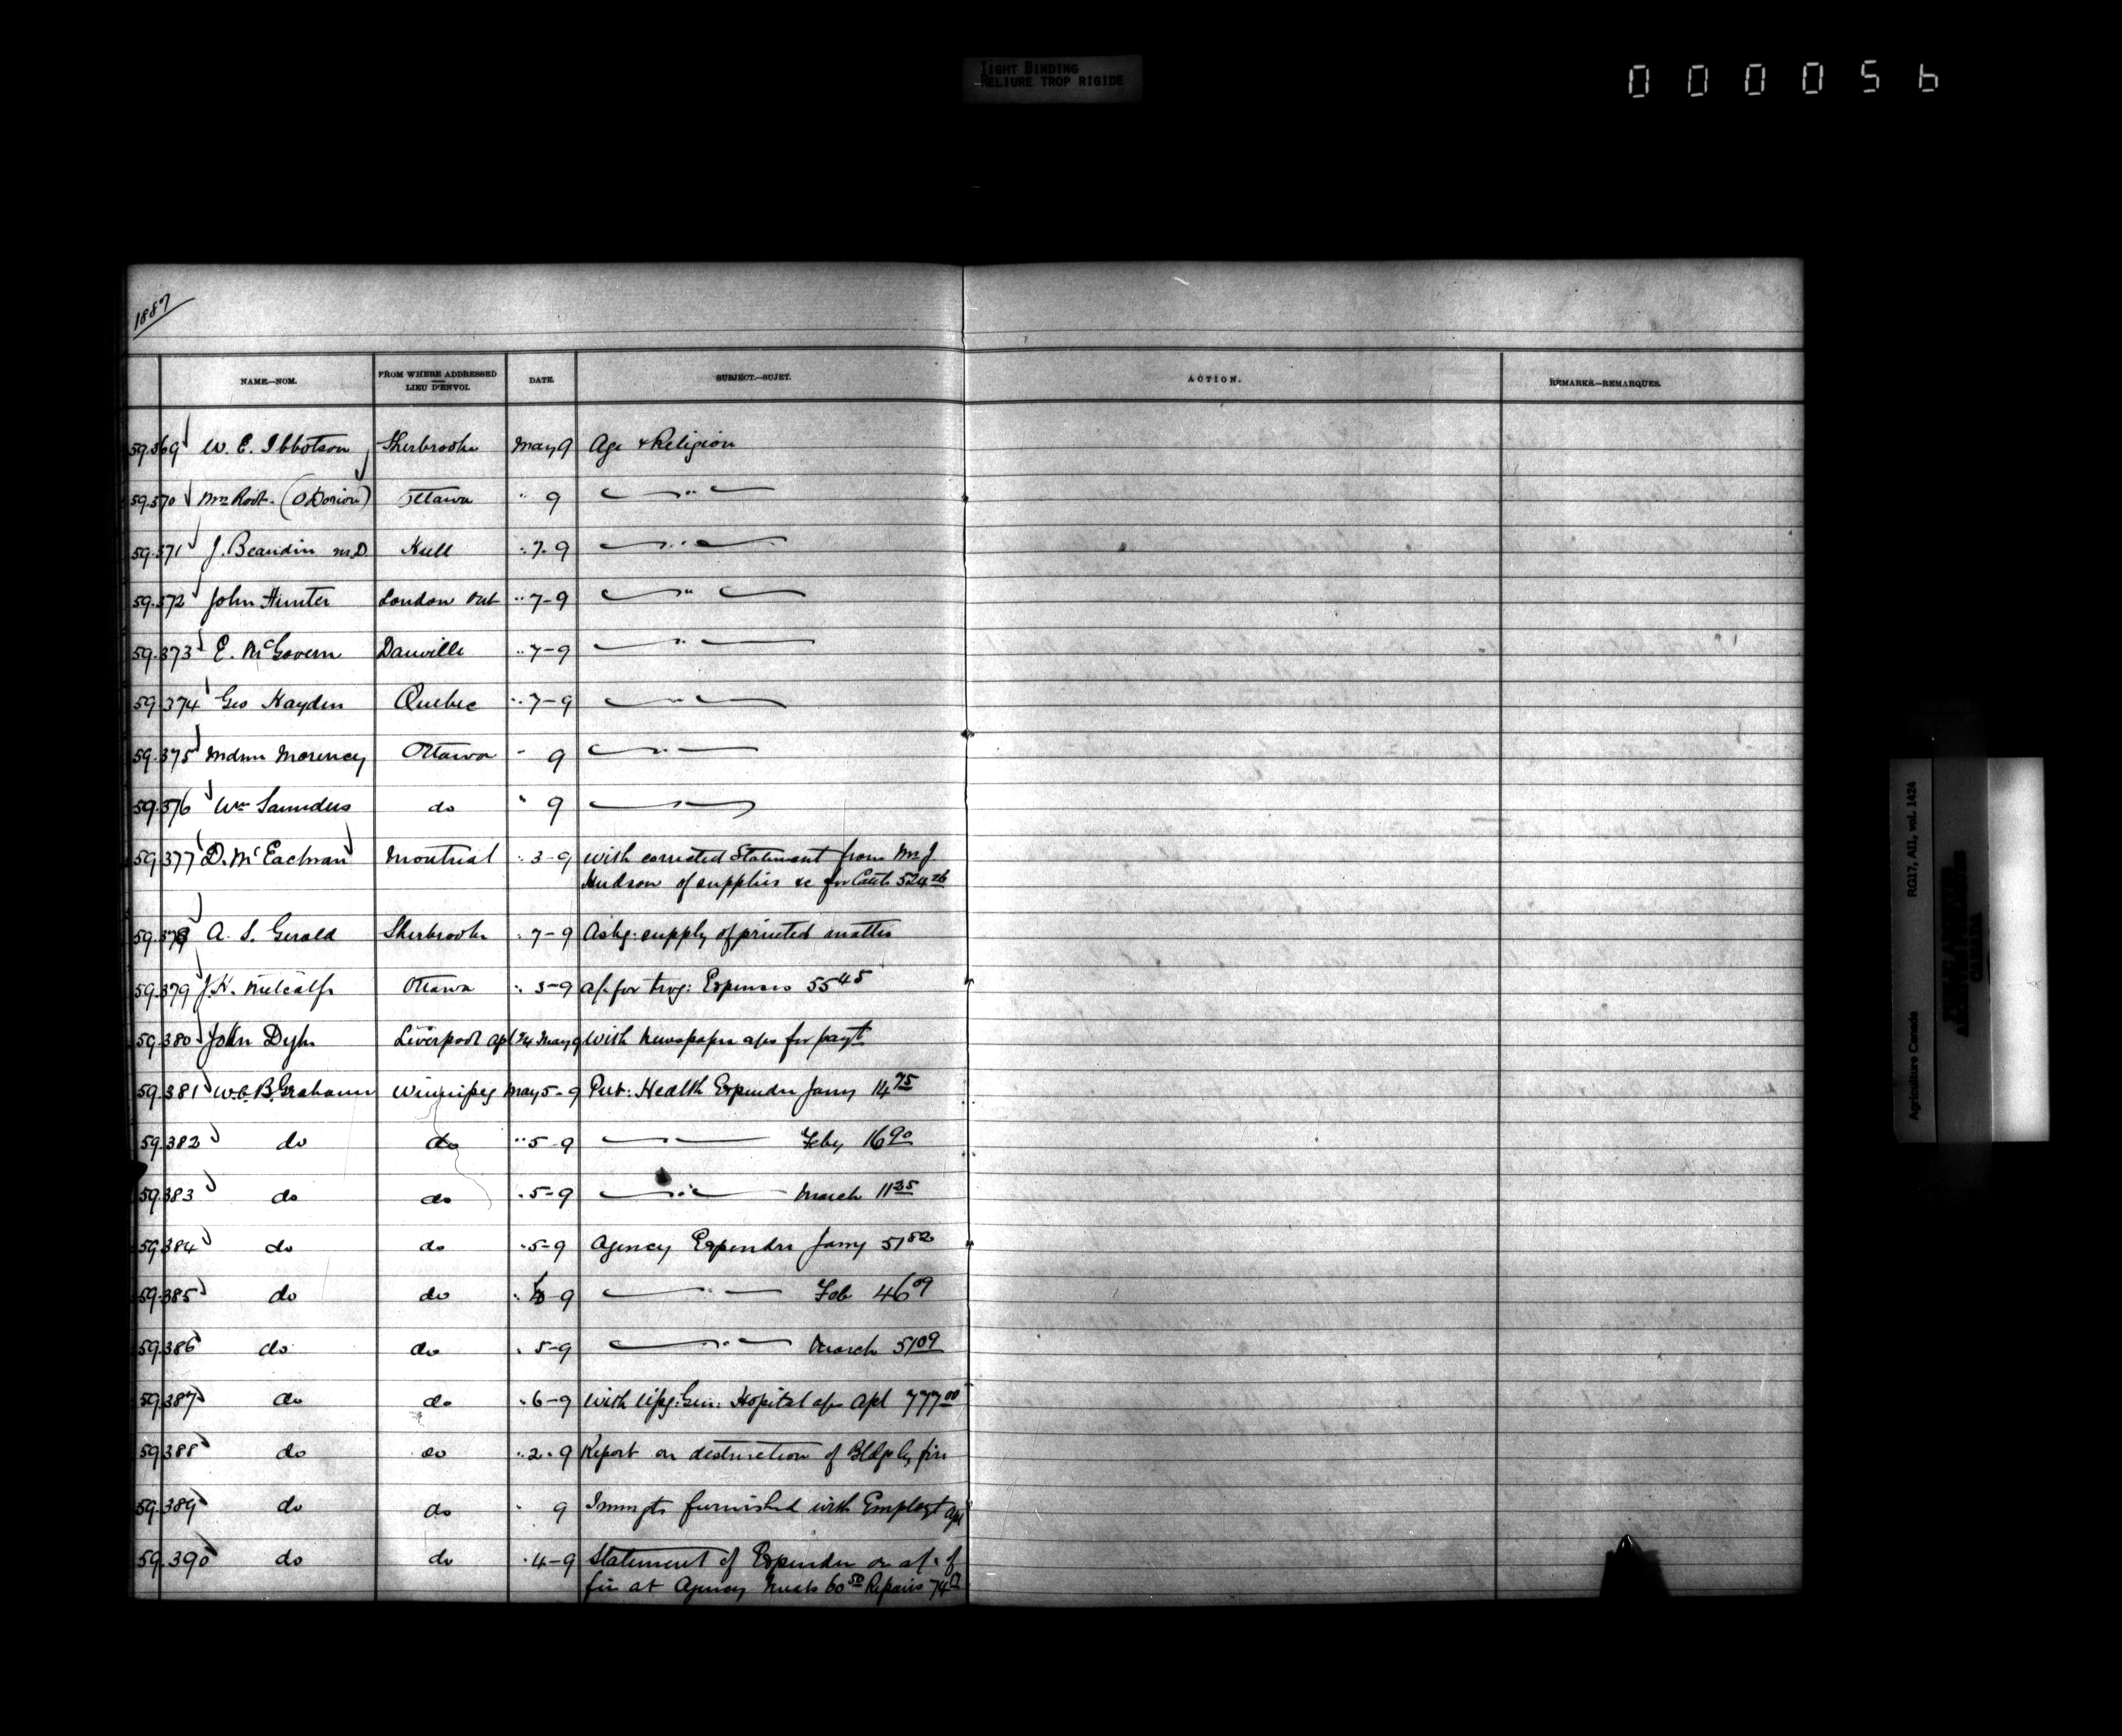 TIGHT BINDING
RELIURE TROP RIGIDE
000056
1887
NAME.—NOM. FROM WHERE ADDRESSED LIEU D'ENVOI. DATE. SUBJECT.—SUJET. ACTION. REMARKS.—REMARQUES.
59.369 W. E. Ibbotson Sherbrooke May 9 Age & Religion
59.370 (O Dorion) Ottawa " 9 — " —
59.371 J. Beaudin M.D. Hull " 7-9 — " —
59.372 John Hunter London Ont " 7-9 — " —
59.373 E. McGovern Danville " 7-9 — " —
59.374 Geo Hayden Quebec " 7-9 — " —
59.375 Morency Ottawa " 9 — " —
59.376 Wm Saunders do " 9 — " —
59.377 D. McEachran Montreal " 3-9 with corrected Statement from Mr J.
Hudson of supplies &c for Cattle 524
59.378 A. S. Gerald Sherbrooke " 7-9 Askg. supply of printed matter
59.379 J. H. Metcalfe Ottawa " 5-9 a/c for trvg: Expenses 55 45
59.380 John Dyke Liverpool Apl 24 May 9 with Newspaper a/cs for payt
59.381 W.C.B. Grahame Winnipeg May 5-9 Pub: Health Expendre Jany 14 75
59.382 do do " 5-9 — " — Feby 16 90
59.383 do do " 5-9 — " — March 11 35
59.384 do do " 5-9 Agency Expendre Jany 51 82
59.385 do do " 5-9 — " — Feb 46 09
59.386 do do " 5-9 — " — March 51 09
59.387 do do " 6-9 with Wpg: Gen: Hopital a/c Apl 777 00
59.388 do do " 2-9 Report on destruction of Bldgs by fire
59.389 do do " 9 Immgts furnished with Employt Apl
59.390 do do " 4-9 Statement of Expendre on a/c of
fire at Agency Meals 60 50 Repairs 74
RG17, AII, vol. 1424
Agriculture Canada